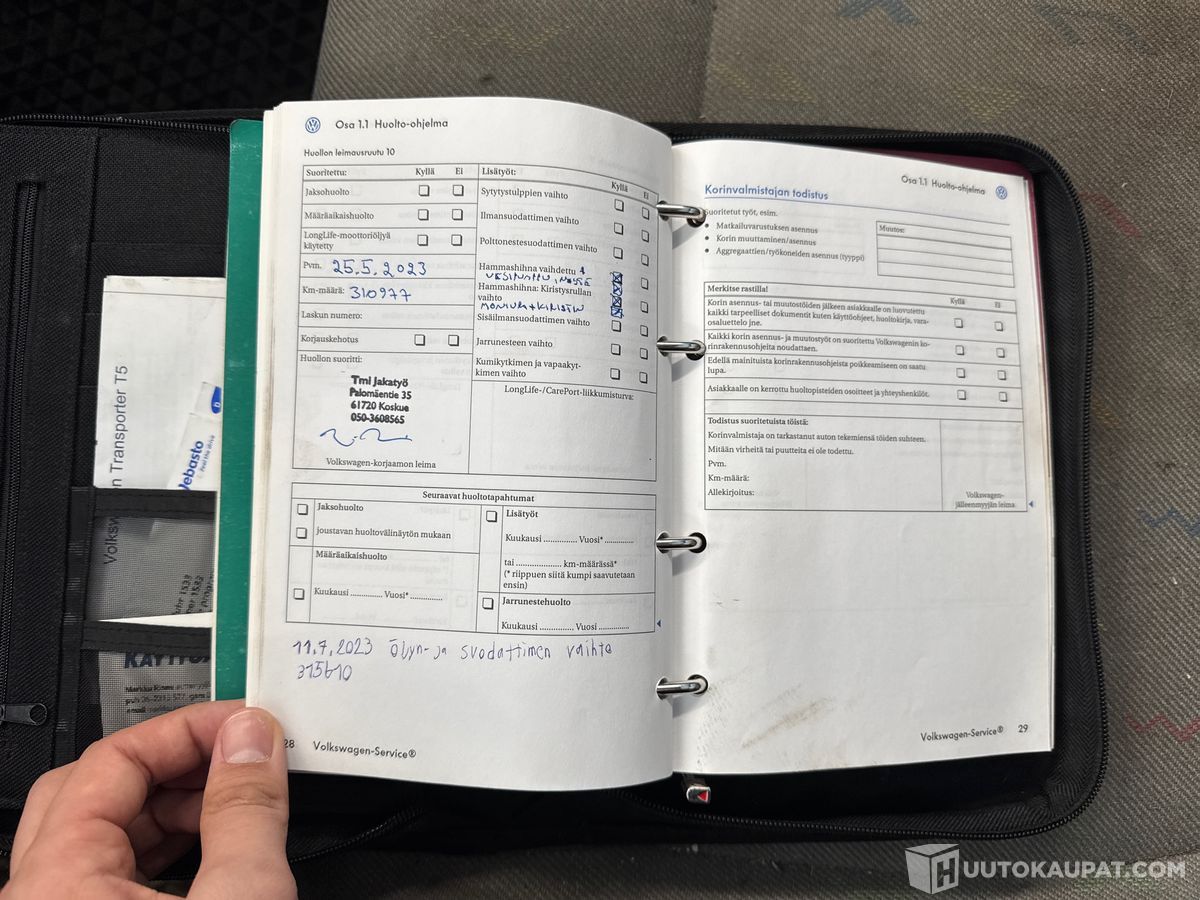 Osa 1.1 Huolto-ohjelma
Huollon leimausruutu 10
Suoritettu: Kyllä Ei
Jaksohuolto
Määräaikaishuolto
LongLife-moottoriöljyä
käytetty
Pvm. 25.5.2023
Km-määrä: 310977
Laskun numero:
Korjauskehotus
Huollon suoritti:
Tmi Jakatyö
Palomäentie 35
61720 Koskue
050-3608565
Volkswagen-korjaamon leima
Lisätyöt: Kyllä Ei
Sytytystulppien vaihto
Ilmansuodattimen vaihto
Polttonestesuodattimen vaihto
Hammashihna vaihdettu +
VESIPUMPPU,
Hammashihna: Kiristysrullan
vaihto
+ KIRISTIN
Sisäilmansuodattimen vaihto
Jarrunesteen vaihto
Kumikytkimen ja vapaakyt-
kimen vaihto
LongLife-/CarePort-liikkumisturva:
Seuraavat huoltotapahtumat
Jaksohuolto
joustavan huoltovälinäytön mukaan
Määräaikaishuolto
Kuukausi ............. Vuosi* .............
Lisätyöt
Kuukausi ............. Vuosi* .............
tai .................. km-määrässä*
(* riippuen siitä kumpi saavutetaan
ensin)
Jarrunestehuolto
Kuukausi ............. Vuosi .............
11.7.2023 Öljyn- ja suodattimen vaihto
315610
28 Volkswagen-Service®
Osa 1.1 Huolto-ohjelma
Korinvalmistajan todistus
Suoritetut työt, esim.
• Matkailuvarustuksen asennus
• Korin muuttaminen/asennus
• Aggregaattien/työkoneiden asennus (tyyppi)
Muutos:
Merkitse rastilla! Kyllä Ei
Korin asennus- tai muutostöiden jälkeen asiakkaalle on luovutettu
kaikki tarpeelliset dokumentit kuten käyttöohjeet, huoltokirja, vara-
osaluettelo jne.
Kaikki korin asennus- ja muutostyöt on suoritettu Volkswagenin ko-
rinrakennusohjeita noudattaen.
Edellä mainituista korinrakennusohjeista poikkeamiseen on saatu
lupa.
Asiakkaalle on kerrottu huoltopisteiden osoitteet ja yhteyshenkilöt.
Todistus suoritetuista töistä:
Korinvalmistaja on tarkastanut auton tekemiensä töiden suhteen.
Mitään virheitä tai puutteita ei ole todettu.
Pvm.
Km-määrä:
Allekirjoitus:
Volkswagen-
jälleenmyyjän leima
Volkswagen-Service® 29
n Transporter T5
Webasto
Feel the drive
Volksw
HUUTOKAUPAT.COM